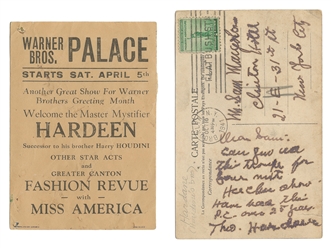 WARNER
BROS. PALACE
STARTS SAT. APRIL 5th
Another Great Show For Warner
Brothers Greeting Month
Welcome the Master Mystifier
HARDEEN
Successor to his brother Harry HOUDINI
OTHER STAR ACTS
and
GREATER CANTON
FASHION REVUE
with
MISS AMERICA
CARTE POSTALE
Mr. Sam Margules
Clinton Hotel
21-E-31st St
New York City
Dear Sam:
Can you use
this for
your
Have had this
P.C. over 25 years.
Theo. Hardeen